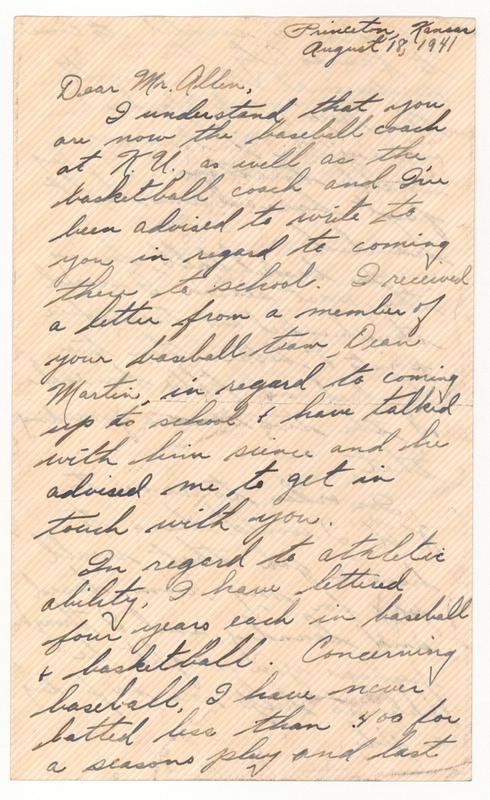 Princeton, Kansas
August 18, 1941
Dear Mr. Allen,
I understand that you
are now the baseball coach
at K.U., as well as the
basketball coach and I've
been advised to write to
you in regard to coming
there to school. I received
a letter from a member of
your baseball team, Dean
Martin, in regard to coming
up to school & have talked
with him sience and he
advised me to get in
touch with you.
In regard to athletic
ability, I have lettered
four years each in baseball
& basketball. Concerning
baseball, I have never
batted less than .400 for
a seasons play and last